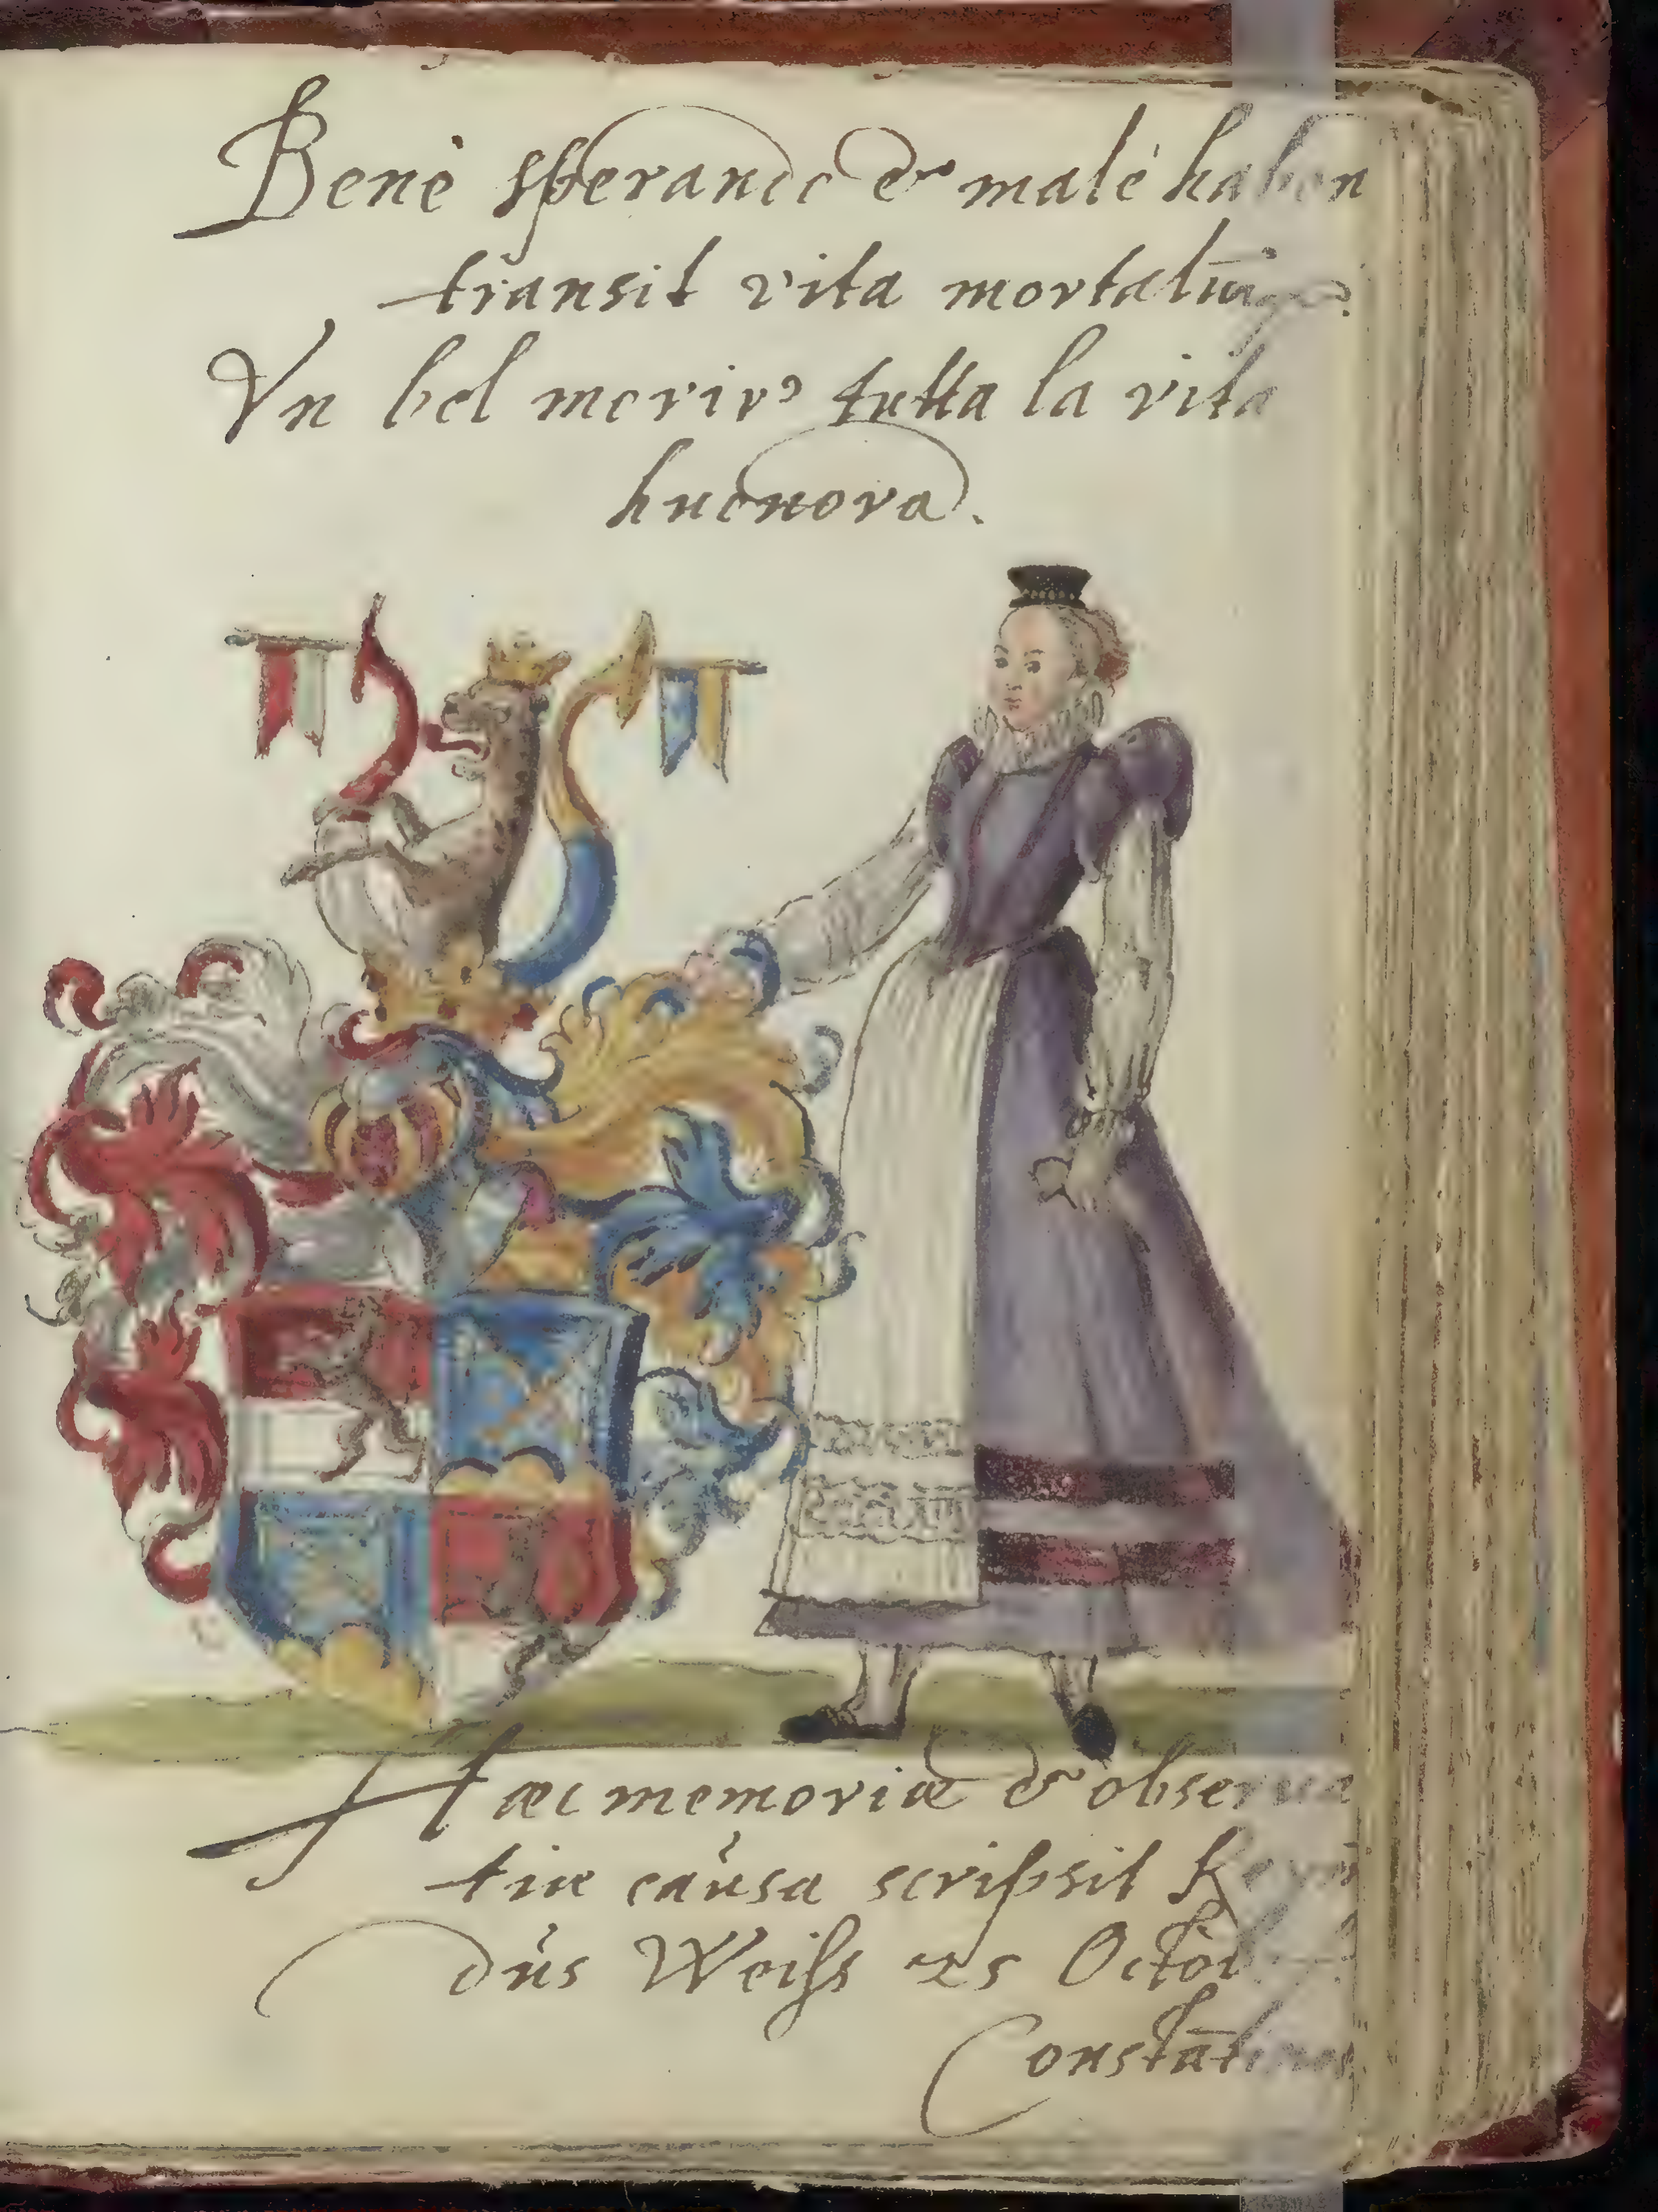 Benè sperando & malè haben
transit vita mortaliũ
Vn bel morire tutta la vita
huonora.
Hæc memoriæ & observa
tiæ causa scripsit
dus Weiss 25 Octob
Constāti